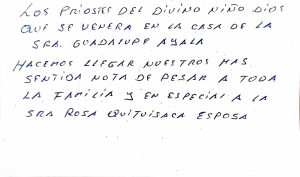 LOS PRIOSTES DEL DIVINO NIÑO DIOS
QUE SE VENERA EN LA CASA DE LA
SRA. GUADALUPE AYALA
HACEMOS LLEGAR NUESTROS MAS
SENTIDA NOTA DE PESAR A TODA
LA FAMILIA Y EN ESPECIAL A LA
SRA ROSA QUITUISACA ESPOSA